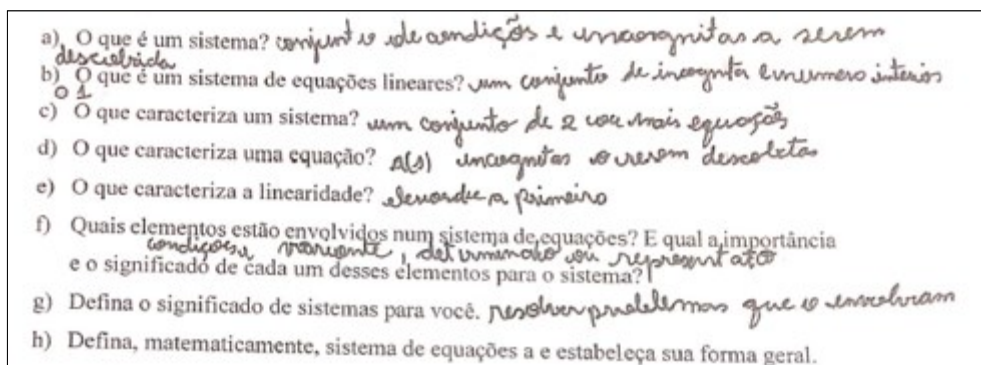 a) O que é um sistema? conjunto de condições e incognitas a serem
descobrida
b) O que é um sistema de equações lineares? um conjunto de incognita e numero interios
0 1
c) O que caracteriza um sistema? um conjunto de 2 ou mais equações
d) O que caracteriza uma equação? A(s) incognitas a serem descobertas
e) O que caracteriza a linearidade? elevado a primeiro
f) Quais elementos estão envolvidos num sistema de equações? E qual a importância
condições, variante, determinado ou
e o significado de cada um desses elementos para o sistema?
g) Defina o significado de sistemas para você. resolver problemas que o envolvram
h) Defina, matematicamente, sistema de equações a e estabeleça sua forma geral.